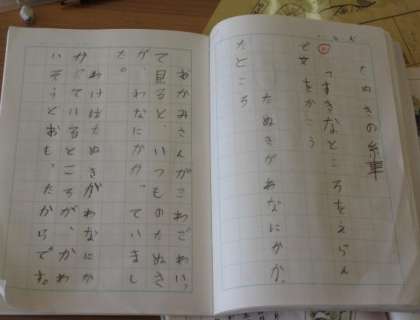 たぬきの糸車
「すきなところをえらん
で文をかこう
たぬきがわなにかかっ
たところ
おかみさんがこわごわいっ
て見ると、いつものたぬき
が、わなにかかっていまし
た。
わけはたぬきがわなにか
かっているところが、かわ
いそうとおもったからです。